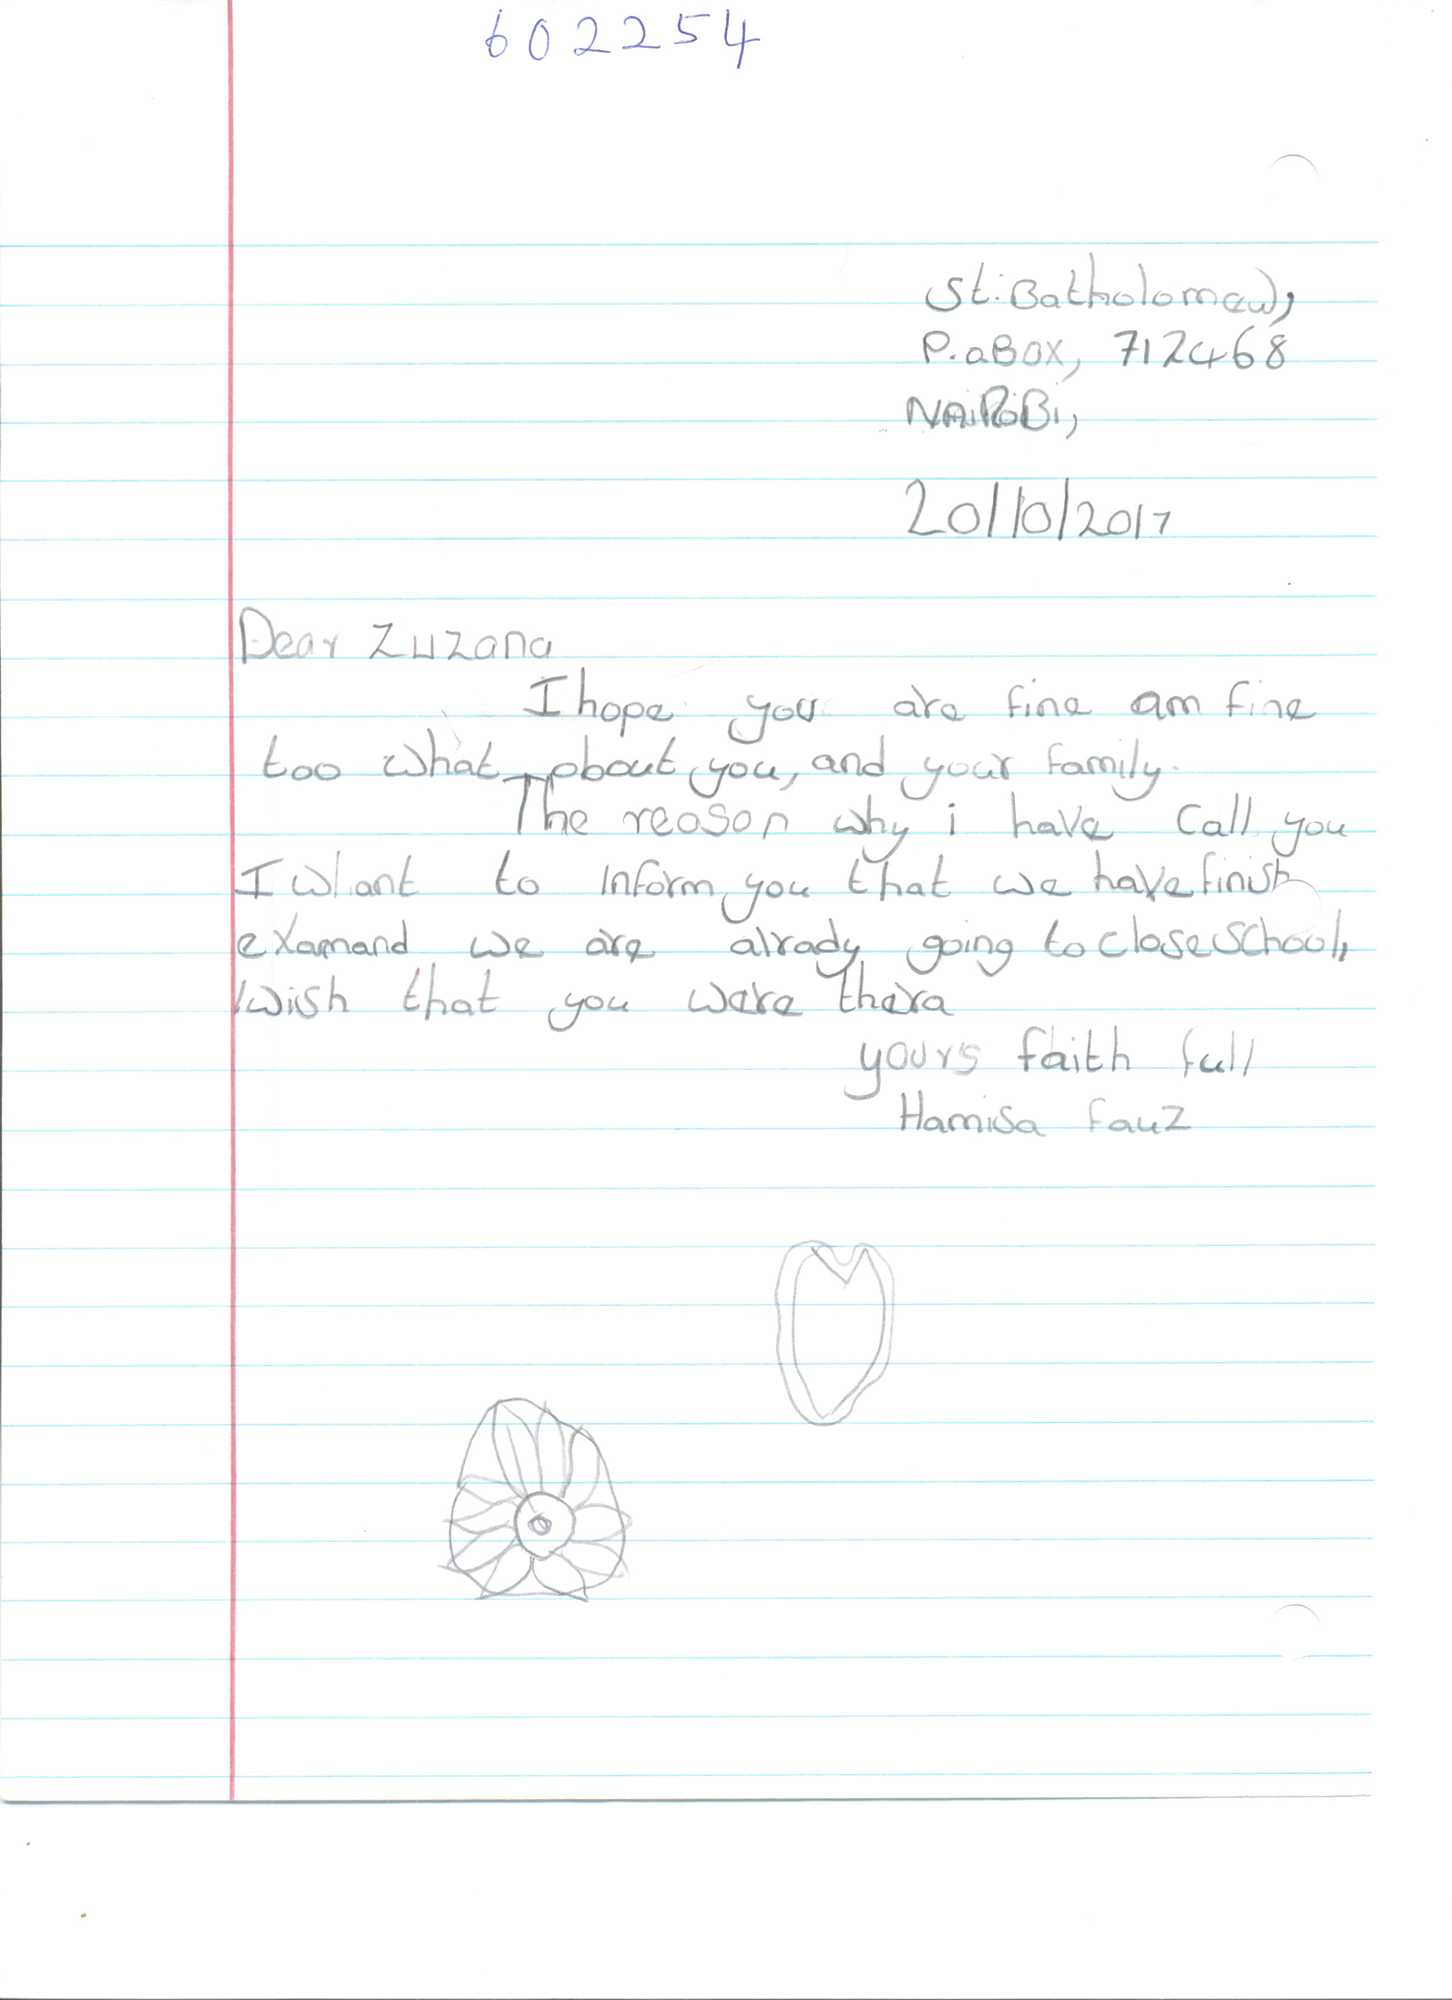 602254
St. Batholomew,
P.oBox, 712468
NAiRoBi,
20/10/2017
Dear Zuzana
I hope you are fine am fine
too what about you, and your family.
The reason why i have call you
I want to inform you that we have finish
examand we are alrady going to close school,
I wish that you were there
yours faith full
Hamisa Fauz